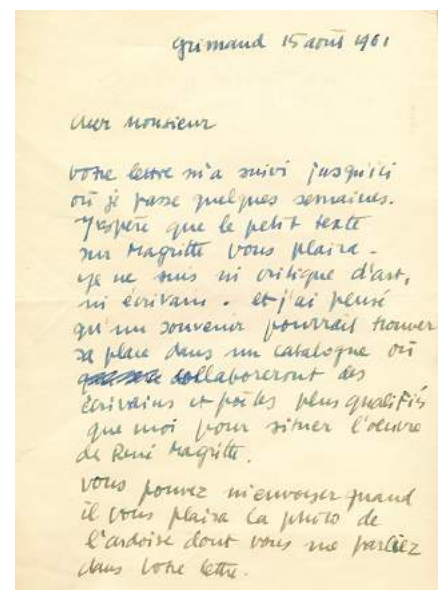 Grimaud 15 août 1961
cher Monsieur
votre lettre m'a suivi jusqu'ici
où je passe quelques semaines.
J'espère que le petit texte
sur Magritte vous plaira.
je ne suis ni critique d'art,
ni écrivain. et j'ai pensé
qu'un souvenir pourrait trouver
sa place dans un catalogue où
collaboreront des
écrivains et poètes plus qualifiés
que moi pour situer l'oeuvre
de René Magritte.
vous pouvez m'envoyer quand
il vous plaira la photo de
l'ardoise dont vous me parliez
dans votre lettre.